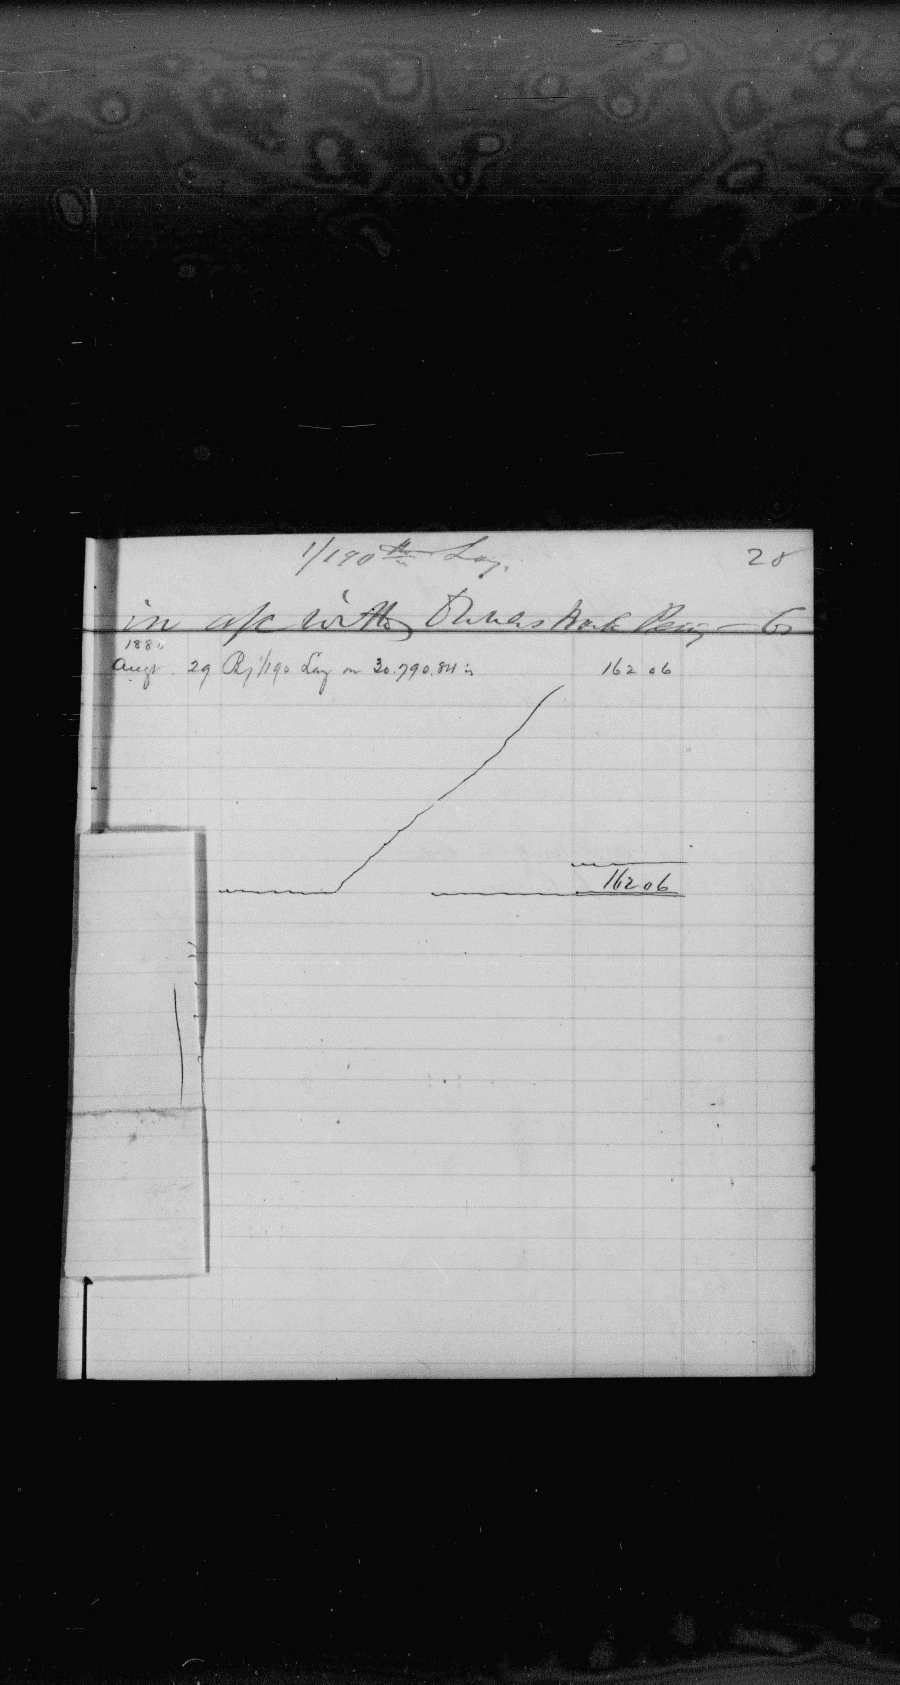 1/190th Lay. 28
in a/c with Owners Bark Cr
188
Augt 29 By 1/190 Lay on 30.790.84 is 162 06
162 06